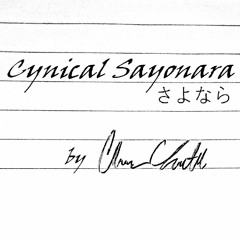 Cynical Sayonara
さよなら
by